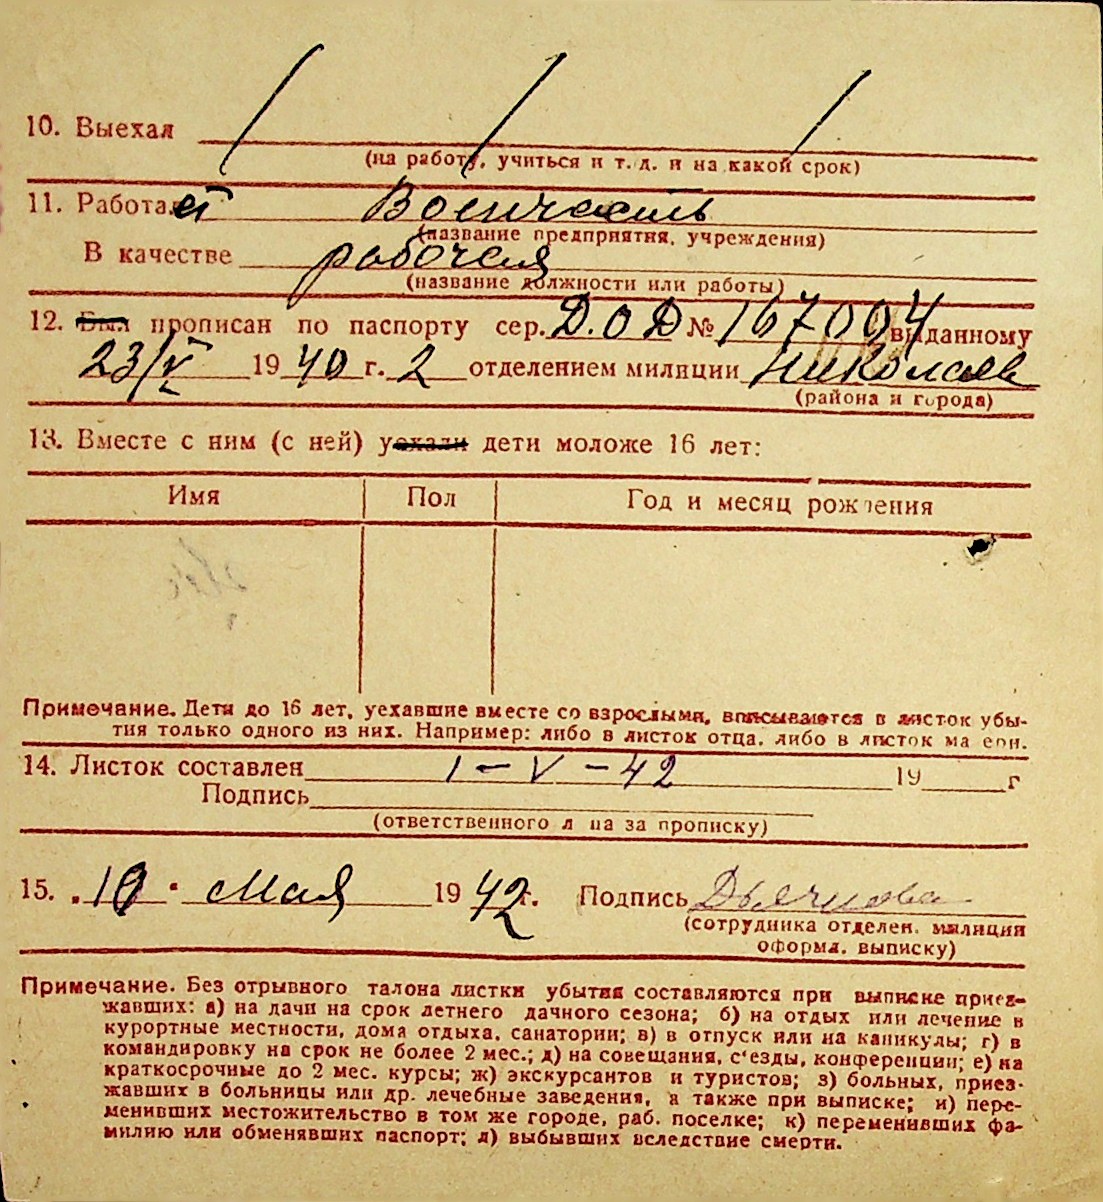 10. Выехал
(на работу, учиться и т. д. и на какой срок)
11. Работает Воинчасть
(название предприятия, учреждения)
В качестве рабочая
(название должности или работы)
12. Был прописан по паспорту сер. Д.О Д № 167004 выданному
23/V 1940 г. 2 отделением милиции Николаев
(района и города)
13. Вместе с ним (с ней) уехали дети моложе 16 лет:
Имя Пол Год и месяц рождения
Примечание. Дети до 16 лет, уехавшие вместе со взрослыми, вписываются в листок убы-
тия только одного из них. Например: либо в листок отца, либо в листок ма ери.
14. Листок составлен 1 – V – 42 19 г
Подпись
(ответственного л ца за прописку)
15. „10" Мая 1942 г. Подпись
(сотрудника отделен. милиции
оформл. выписку)
Примечание. Без отрывного талона листки убытия составляются при выписке приез-
жавших: а) на дачи на срок летнего дачного сезона; б) на отдых или лечение в
курортные местности, дома отдыха, санатории; в) в отпуск или на каникулы; г) в
командировку на срок не более 2 мес.; д) на совещания, с'езды, конференции; е) на
краткосрочные до 2 мес. курсы; ж) экскурсантов и туристов; з) больных, приез-
жавших в больницы или др. лечебные заведения, а также при выписке; и) пере-
менивших местожительство в том же городе, раб. поселке; к) переменивших фа-
милию или обменявших паспорт; л) выбывших вследствие смерти.